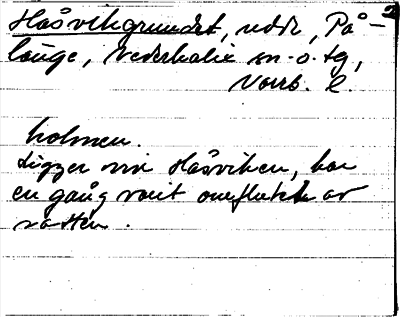 Håsviksgrundet, udde, På-
länge, Nederkalix sn. o. tg,
Norrb. l.
holmen.
Ligger vid Håsviken, har
en gång varit omflutet av
vatten.